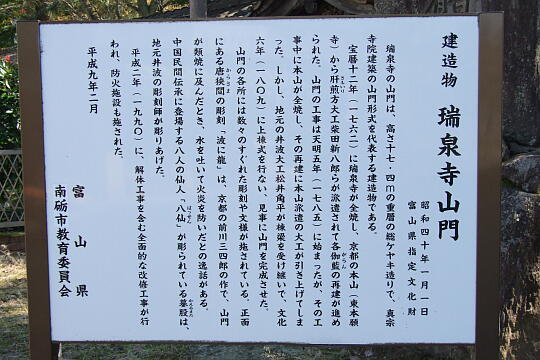 建造物　瑞泉寺山門
昭和四十年一月一日
富山県指定文化財
瑞泉寺の山門は、高さ十七・四ｍの重層の総ケヤキ造りで、真宗
寺院建築の山門形式を代表する建造物である。
宝暦十二年（一七六二）に瑞泉寺が全焼し、京都の本山（東本願
寺）から肝煎方大工柴田新八郎らが派遣されて各伽藍の再建が進め
られた。山門の工事は天明五年（一七八五）に始まったが、その工
事中に本山が全焼し、その再建に本山派遣の大工が引き上げてしま
った。しかし、地元の井波大工松井角平が棟梁を受け継いで、文化
六年（一八〇九）に上棟式を行ない、見事に山門を完成させた。
山門の各所には数々のすぐれた彫刻や文様が施されている。正面
にある唐狭間の彫刻「波に龍」は、京都の前川三四郎の作で、山門
が類焼に及んだとき、水を吐いて火炎を防いだとの逸話がある。
中国民間伝承に登場する八人の仙人「八仙」が彫られている蟇股は、
地元井波の彫刻師が彫りあげた。
平成二年（一九九〇）に、解体工事を含む全面的な改修工事が行
われ、防火施設も施された。
平成九年二月
富山県
南砺市教育委員会